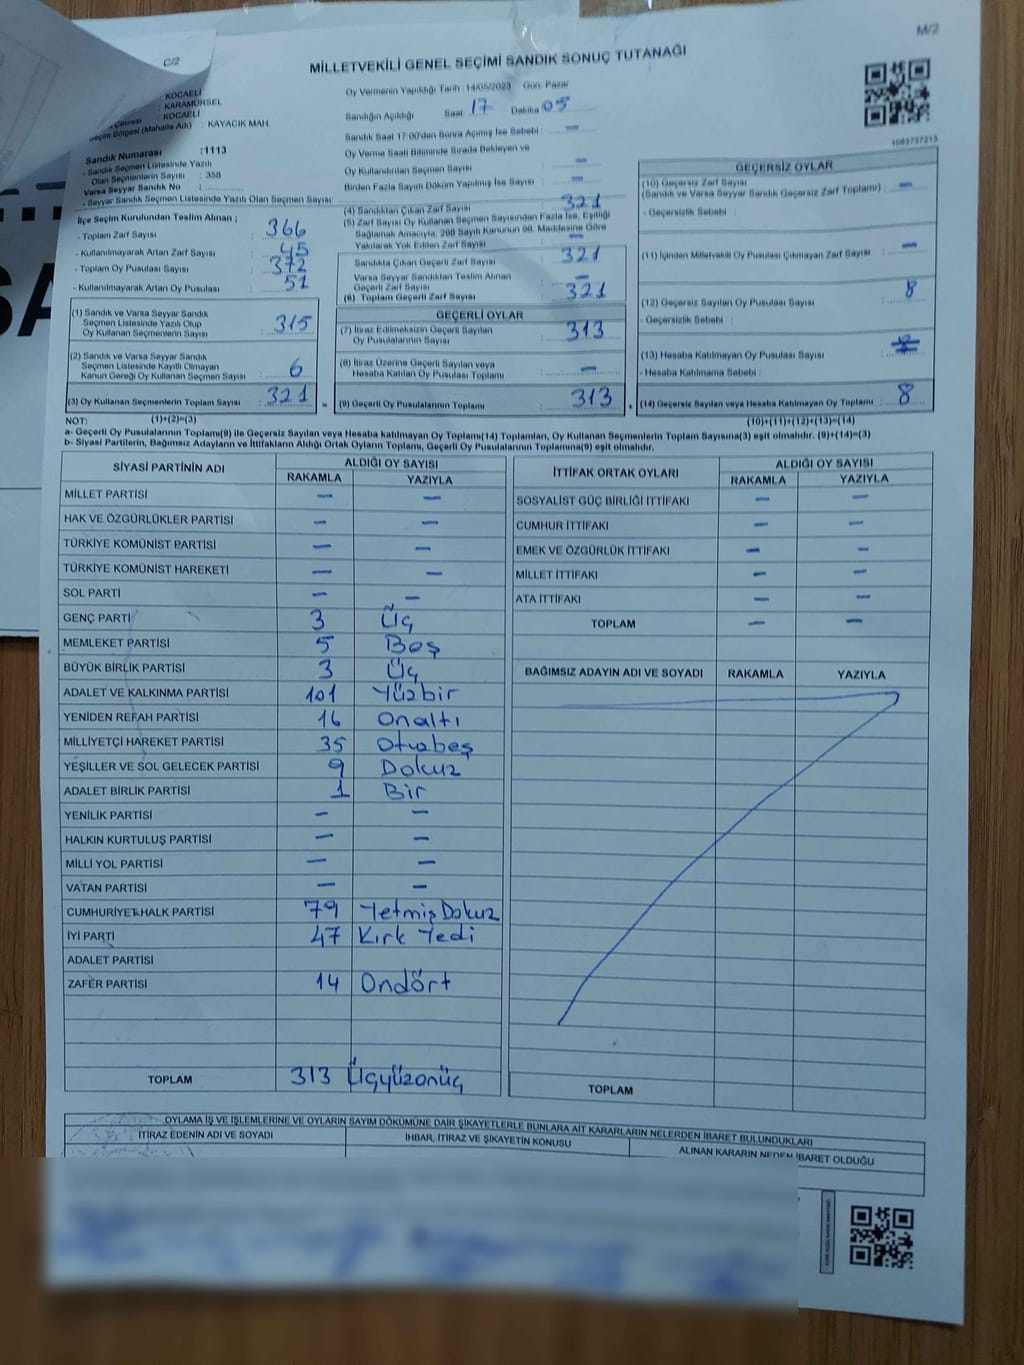 C/2
M/2
MİLLETVEKİLİ GENEL SEÇİMİ SANDIK SONUÇ TUTANAĞI
: KOCAELİ
: KARAMÜRSEL
: KOCAELİ
Seçim Bölgesi (Mahalle Adı) : KAYACIK MAH.
Sandık Numarası :1113
- Sandık Seçmen Listesinde Yazılı
Olan Seçmenlerin Sayısı : 358
Varsa Seyyar Sandık No :
- Seyyar Sandık Seçmen Listesinde Yazılı Olan Seçmen Sayısı
Oy Vermenin Yapıldığı Tarih : 14/05/2023 Gün: Pazar
Sandığın Açıldığı Saat 17 Dakika 05
Sandık Saat 17:00'dan Sonra Açılmış İse Sebebi : —
Oy Verme Saati Bitiminde Sırada Bekleyen ve
Oy Kullandırılan Seçmen Sayısı —
Birden Fazla Sayım Döküm Yapılmış İse Sayısı —
1083737213
İlçe Seçim Kurulundan Teslim Alınan ;
- Toplam Zarf Sayısı : 366
- Kullanılmayarak Artan Zarf Sayısı : 45
- Toplam Oy Pusulası Sayısı : 372
- Kullanılmayarak Artan Oy Pusulası : 51
(1) Sandık ve Varsa Seyyar Sandık
Seçmen Listesinde Yazılı Olup
Oy Kullanan Seçmenlerin Sayısı : 315
(2) Sandık ve Varsa Seyyar Sandık
Seçmen Listesinde Kayıtlı Olmayan
Kanun Gereği Oy Kullanan Seçmen Sayısı : 6
(3) Oy Kullanan Seçmenlerin Toplam Sayısı : 321
(4) Sandıktan Çıkan Zarf Sayısı : 321
(5) Zarf Sayısı Oy Kullanan Seçmen Sayısından Fazla İse, Eşitliği
Sağlamak Amacıyla, 298 Sayılı Kanunun 98. Maddesine Göre
Yakılarak Yok Edilen Zarf Sayısı —
Sandıkta Çıkan Geçerli Zarf Sayısı : 321
Varsa Seyyar Sandıktan Teslim Alınan
Geçerli Zarf Sayısı : —
(6) Toplam Geçerli Zarf Sayısı : 321
GEÇERLİ OYLAR
(7) İtiraz Edilmeksizin Geçerli Sayılan
Oy Pusulalarının Sayısı : 313
(8) İtiraz Üzerine Geçerli Sayılan veya
Hesaba Katılan Oy Pusulası Toplamı : —
= (9) Geçerli Oy Pusulalarının Toplamı : 313
GEÇERSİZ OYLAR
(10) Geçersiz Zarf Sayısı
(Sandık ve Varsa Seyyar Sandık Geçersiz Zarf Toplamı) : —
- Geçersizlik Sebebi :
(11) İçinden Milletvekili Oy Pusulası Çıkmayan Zarf Sayısı : —
(12) Geçersiz Sayılan Oy Pusulası Sayısı : 8
- Geçersizlik Sebebi :
(13) Hesaba Katılmayan Oy Pusulası Sayısı :
- Hesaba Katılmama Sebebi :
+ (14) Geçersiz Sayılan veya Hesaba Katılmayan Oy Toplamı : 8
NOT: (1)+(2)=(3) (10)+(11)+(12)+(13)=(14)
a- Geçerli Oy Pusulalarının Toplamı(9) ile Geçersiz Sayılan veya Hesaba katılmayan Oy Toplamı(14) Toplamları, Oy Kullanan Seçmenlerin Toplam Sayısına(3) eşit olmalıdır. (9)+(14)=(3)
b- Siyasi Partilerin, Bağımsız Adayların ve İttifakların Aldığı Ortak Oyların Toplamı, Geçerli Oy Pusulalarının Toplamına(9) eşit olmalıdır.
SİYASİ PARTİNİN ADI ALDIĞI OY SAYISI
RAKAMLA YAZIYLA
MİLLET PARTİSİ — —
HAK VE ÖZGÜRLÜKLER PARTİSİ — —
TÜRKİYE KOMÜNİST PARTİSİ — —
TÜRKİYE KOMÜNİST HAREKETİ — —
SOL PARTİ — —
GENÇ PARTİ 3 Üç
MEMLEKET PARTİSİ 5 Beş
BÜYÜK BİRLİK PARTİSİ 3 Üç
ADALET VE KALKINMA PARTİSİ 101 Yüzbir
YENİDEN REFAH PARTİSİ 16 Onaltı
MİLLİYETÇİ HAREKET PARTİSİ 35 Otuzbeş
YEŞİLLER VE SOL GELECEK PARTİSİ 9 Dokuz
ADALET BİRLİK PARTİSİ 1 Bir
YENİLİK PARTİSİ — —
HALKIN KURTULUŞ PARTİSİ — —
MİLLİ YOL PARTİSİ — —
VATAN PARTİSİ — —
CUMHURİYET HALK PARTİSİ 79 Yetmiş Dokuz
İYİ PARTİ 47 Kırk Yedi
ADALET PARTİSİ
ZAFER PARTİSİ 14 Ondört
TOPLAM 313 Üçyüzonüç
İTTİFAK ORTAK OYLARI ALDIĞI OY SAYISI
RAKAMLA YAZIYLA
SOSYALİST GÜÇ BİRLİĞİ İTTİFAKI — —
CUMHUR İTTİFAKI — —
EMEK VE ÖZGÜRLÜK İTTİFAKI — —
MİLLET İTTİFAKI — —
ATA İTTİFAKI — —
TOPLAM — —
BAĞIMSIZ ADAYIN ADI VE SOYADI RAKAMLA YAZIYLA
TOPLAM
OYLAMA İŞ VE İŞLEMLERİNE VE OYLARIN SAYIM DÖKÜMÜNE DAİR ŞİKAYETLERLE BUNLARA AİT KARARLARIN NELERDEN İBARET BULUNDUKLARI
İTİRAZ EDENİN ADI VE SOYADI İHBAR, İTİRAZ VE ŞİKAYETİN KONUSU ALINAN KARARIN NEDEN İBARET OLDUĞU